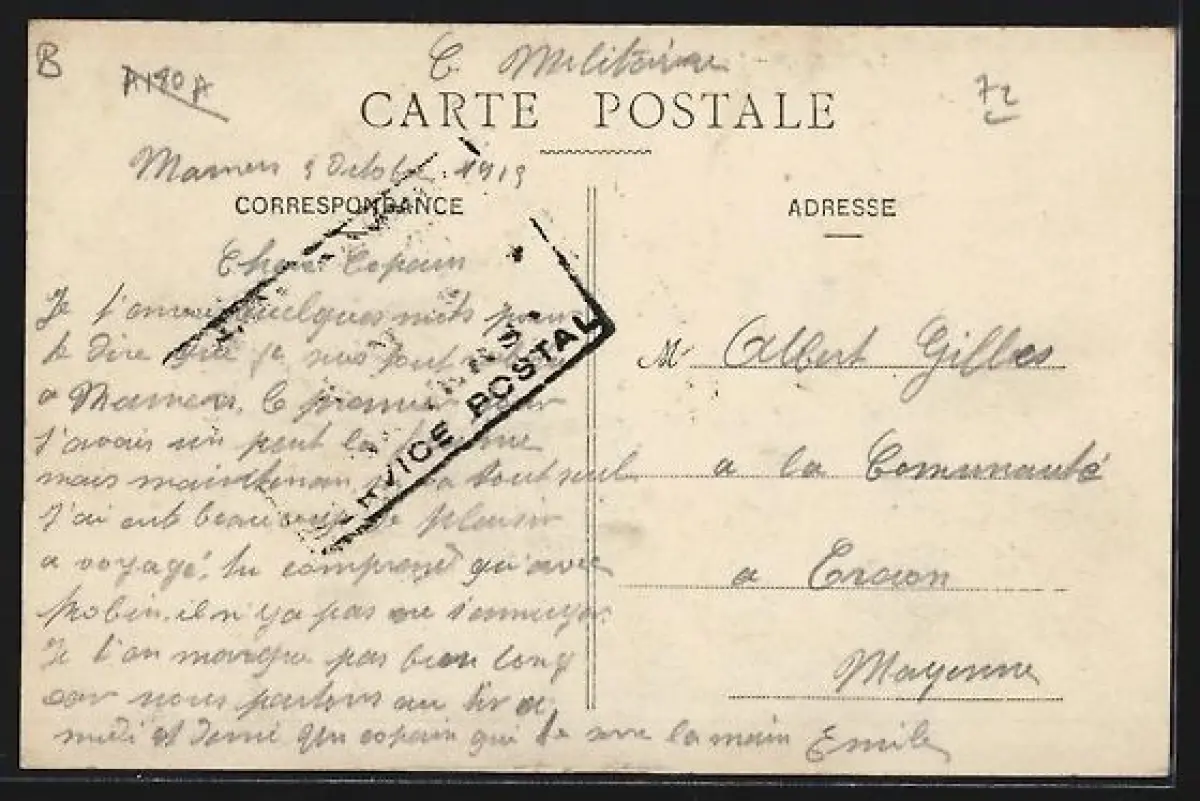 B
A190A
C. Militaire
72
CARTE POSTALE
Mamers 9 Octobre 1913
CORRESPONDANCE
ADRESSE
Cher Copain
Je t'envoie quelques mots pour
te dire que je suis tout
a Mamers, le premier jour
j'avais un peut le
mais maintenant tout seul
j'ai eut beaucoup de plaisir
a voyagé, tu comprend qu'avec
Robin il n'y a pas de s'ennuyer.
Je t'en marque pas bien long
car nous partons au tir a
midi et demi ton copain qui te serre la main Emile
SERVICE POSTAL
Mr Albert Gilles
a la Comunauté
a Craon
Mayenne